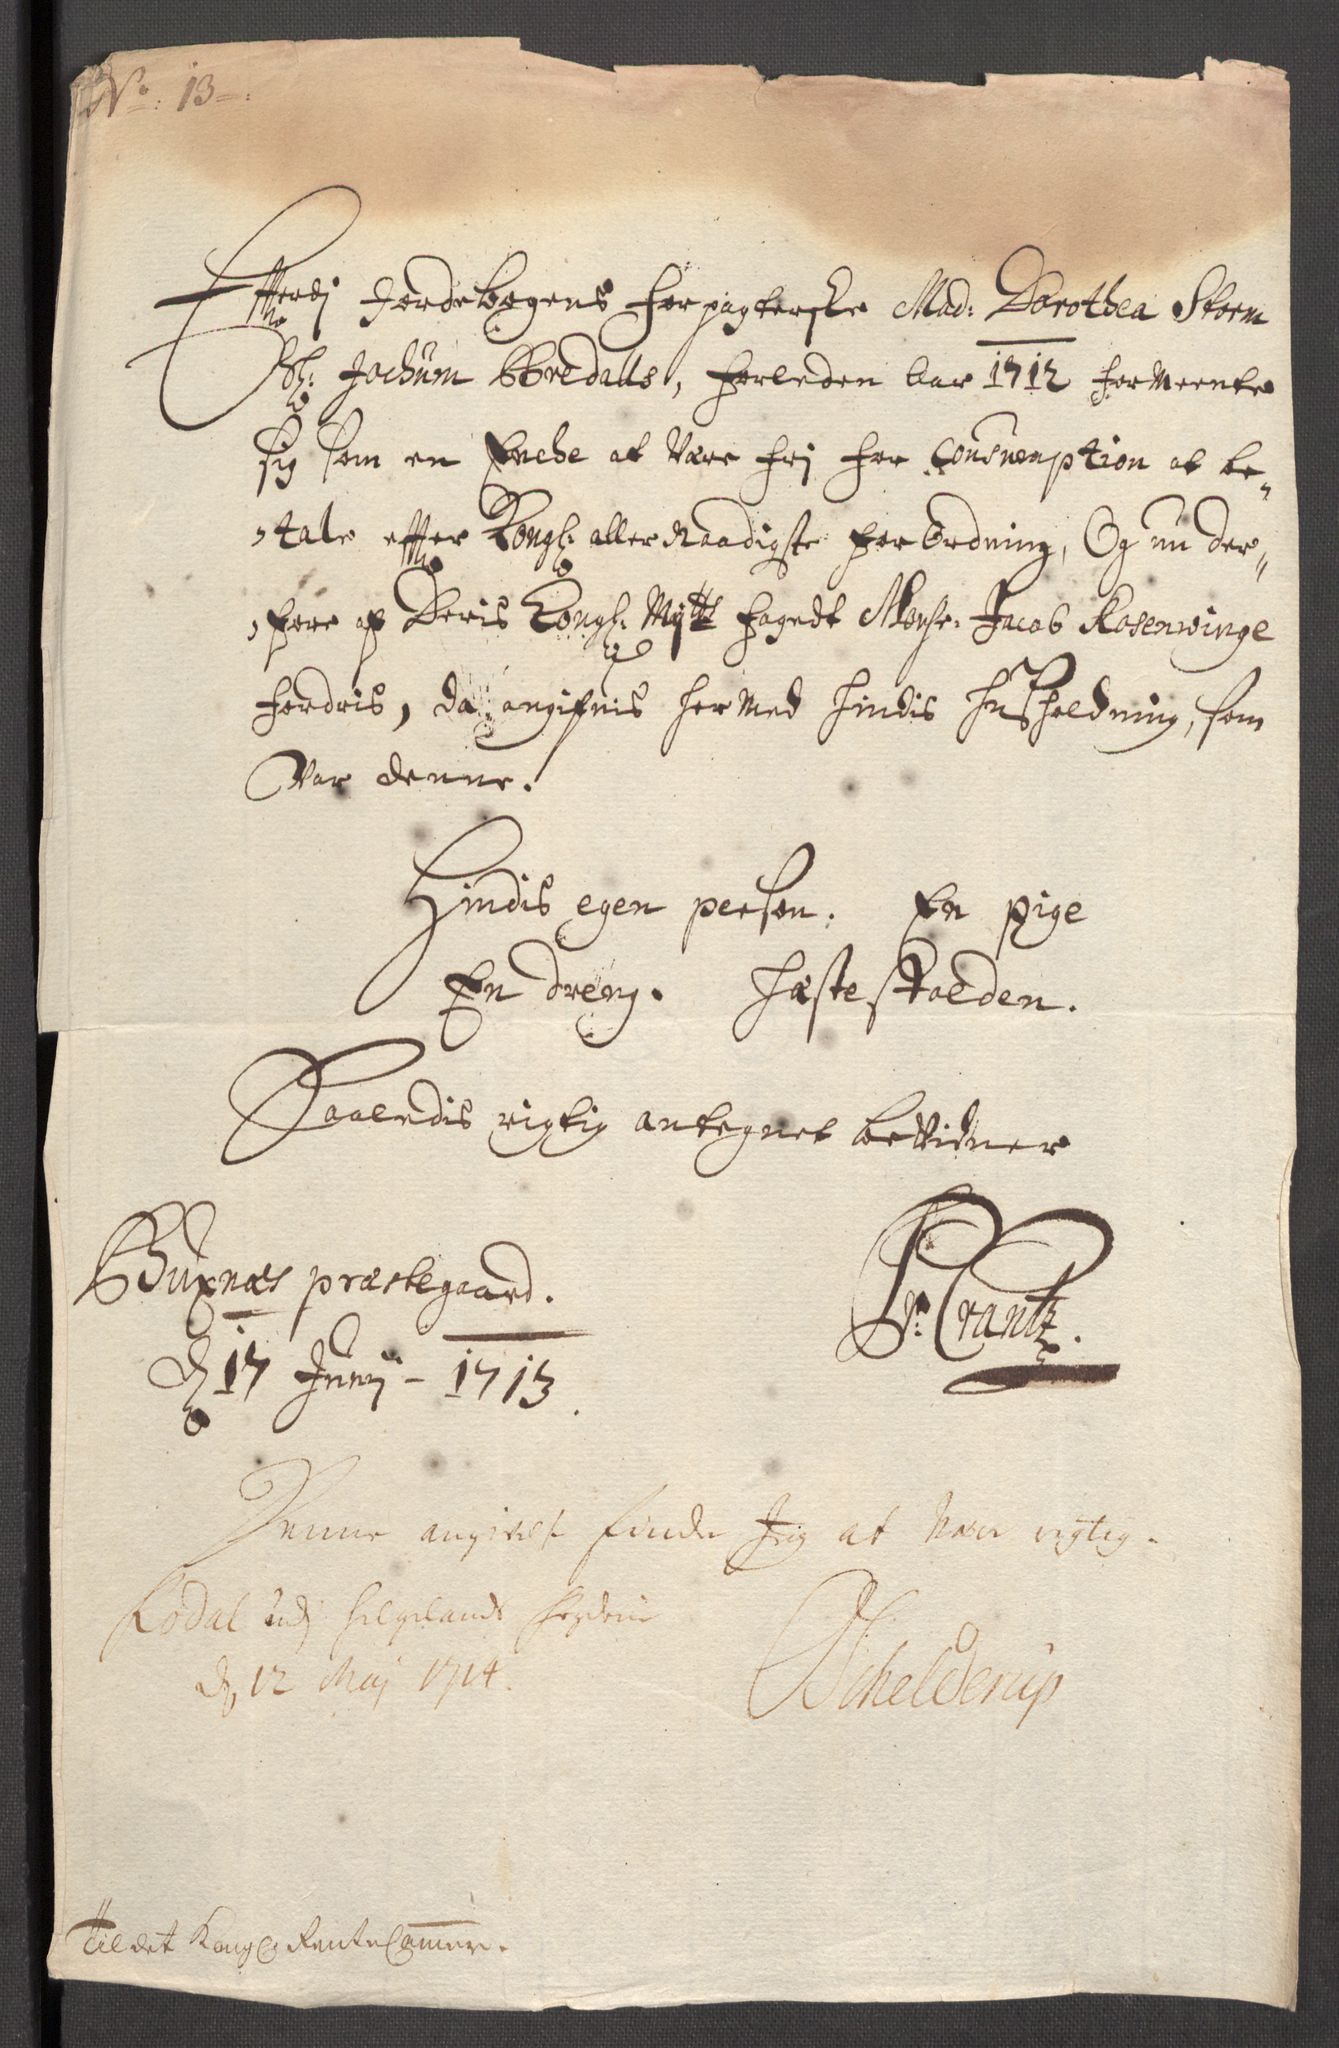 No: 13
Efterdj Jordebogens Forpagterske Mad: Dorothea Storm
Sl: Jochum Bredalls, forleden Aar 1712 formeente
sig som en Enche at Være frj for Consumption at be-
tale efter Kongl: aller Naadigste forOrdning, Og nu der-
fore af Deris Kongl: Mÿtts Fogedt Monsr. Jacob Rosenwinge
fordris, da angifnis hermed hindis Husholdning, som
Var denne.
Hindis egen person. En pige
En dreng. hæstestolden.
Saaledis rigtig antegnet beVidner
Buxnæs præstegaard.
d 17 Junij - 1713.
Pr: Crantz.
Denne angivelse finder Jeg at Være rigtig.
udj Helgelands fogderie
d 12 Maj 1714.
Schelderup
Til det Kongl. RenteCammer.